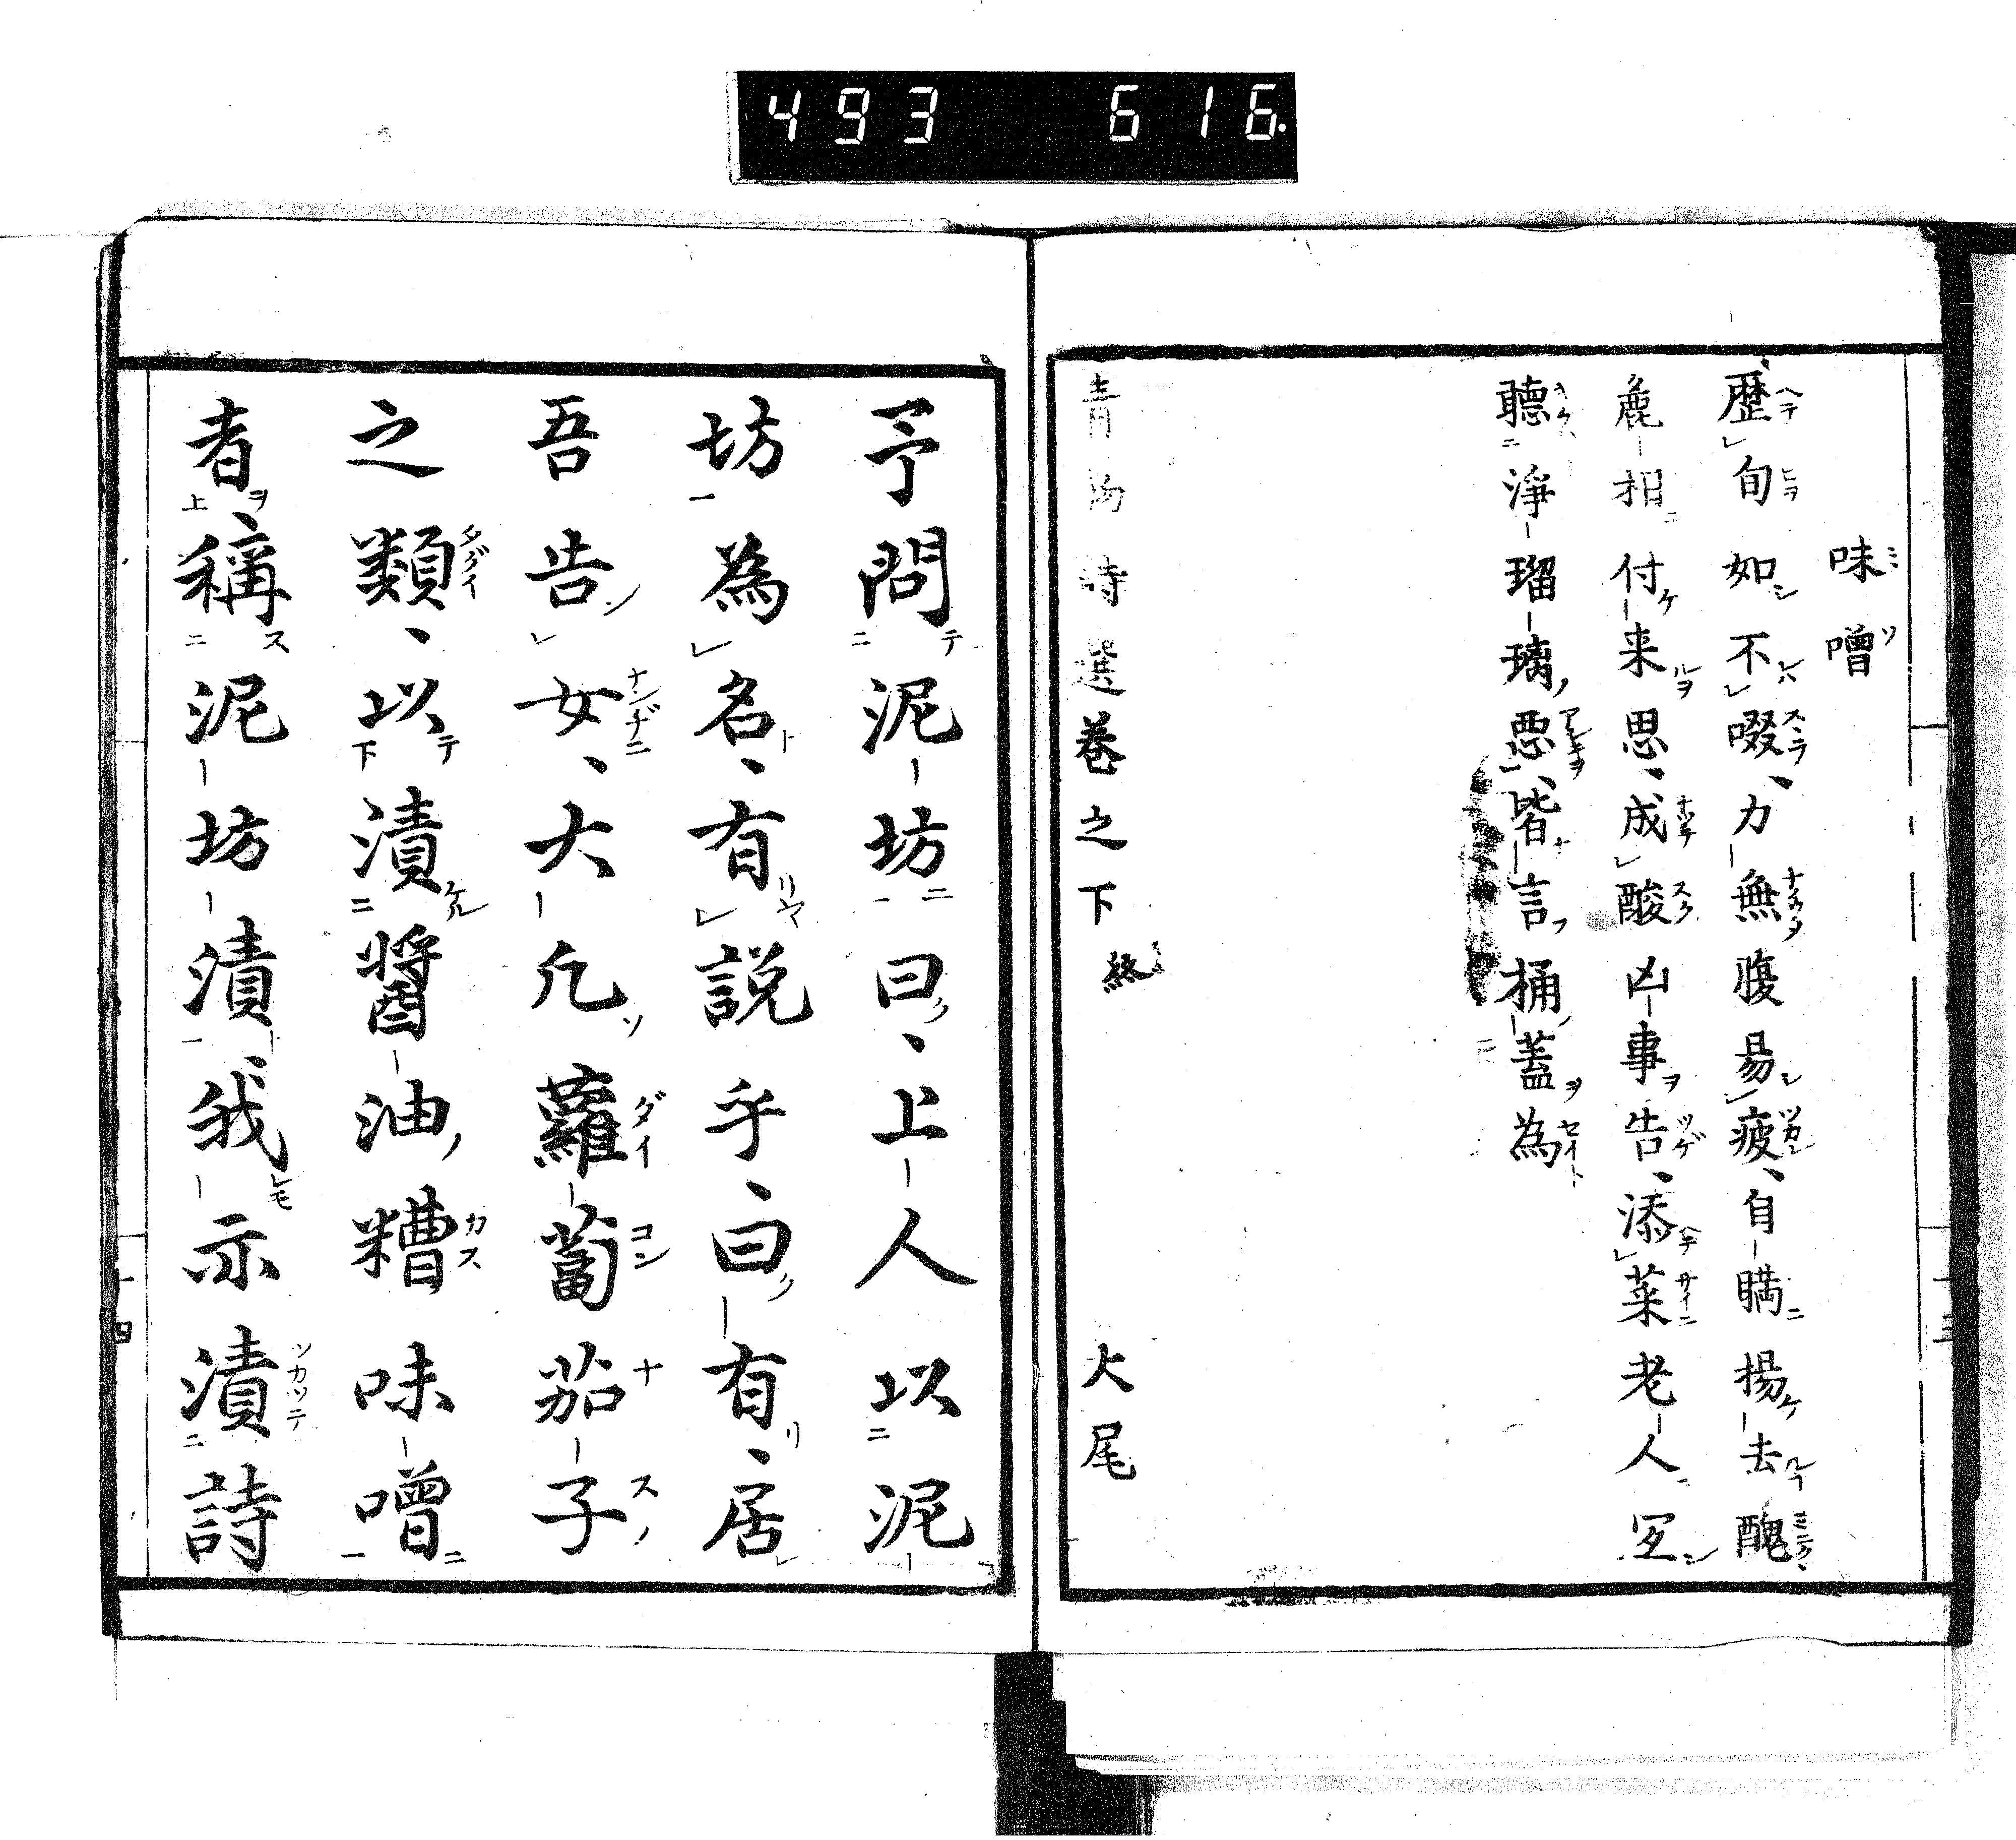 493 616.
味噌
歴旬如不啜力無腹易疲自瞞揚去醜
麁相付来思成酸凶事告添菜老人笑
聴浄瑠璃悪皆言桶蓋為
青物詩選巻之下終 大尾
予問泥坊曰上人以泥
坊為名有説乎曰有居
吾告女大凡蘿蔔茄子
之類以漬醤油糟味噌
者稱泥坊漬我亦漬詩